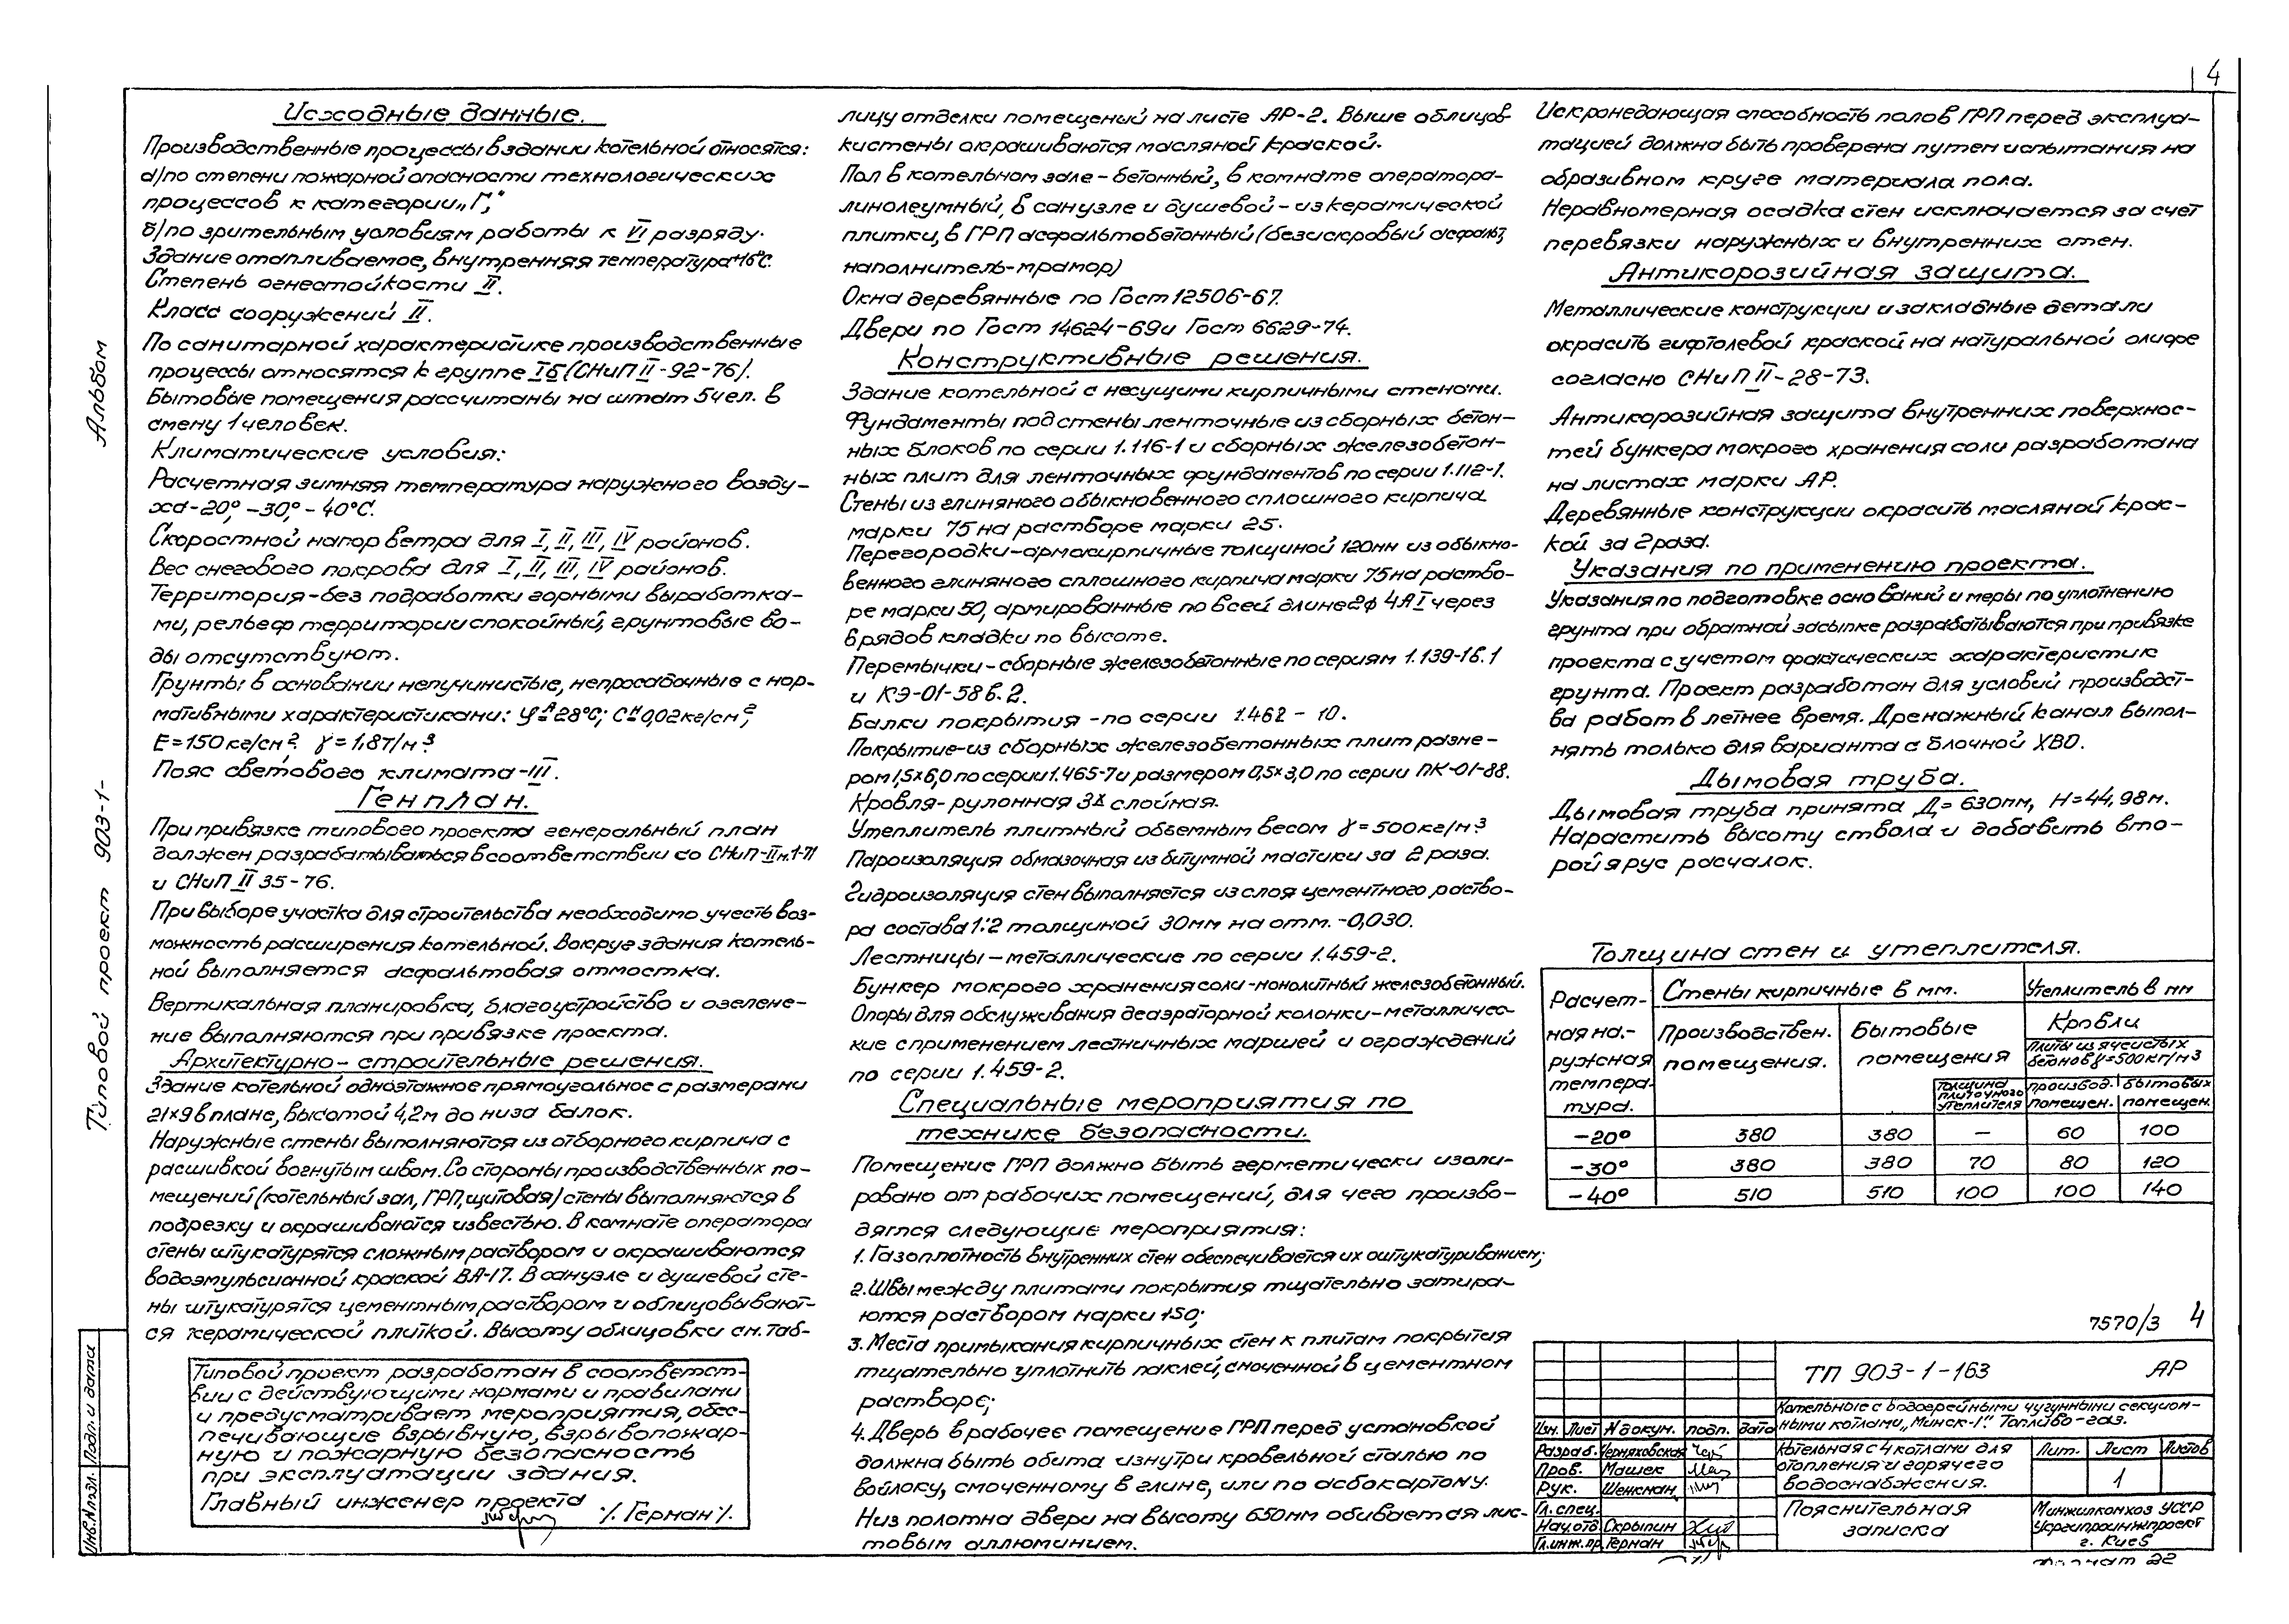 4
Исходные данные.
Производственные процессы в здании котельной относятся:
а/по степени пожарной опасности технологических
процессов к категории „Г,"
б/по зрительным условиям работы к VI разряду.
Здание отапливаемое, внутренняя температура+16°С.
Степень огнестойкости II.
Класс сооружений II.
По санитарной характеристике производственные
процессы относятся к группе Iб (СНиП II-92-76).
Бытовые помещения рассчитаны на штат 5чел. в
смену 1человек.
Климатические условия:
Расчетная зимняя температура наружного возду-
ха-20°, -30°, -40°С.
Скоростной напор ветра для I, II, III, IV районов.
Вес снегового покрова для I, II, III, IV районов.
Территория-без подработки горными выработка-
ми, рельеф территории спокойный, грунтовые во-
ды отсутствуют.
Грунты в основании непучинистые, непросадочные с нор-
мативными характеристиками: φᴴ=28°С; Сᴴ=0,02кг/см²;
Е=150кг/см². γ=1,8т/м³
Пояс светового климата-III.
Генплан.
При привязке типового проекта генеральный план
должен разрабатываться в соответствии со СНиП-IIм.1-71
и СНиП II 35-76.
При выборе участка для строительства необходимо учесть воз-
можность расширения котельной. Вокруг здания котель-
ной выполняется асфальтовая отмостка.
Вертикальная планировка, благоустройство и озелене-
ние выполняются при привязке проекта.
Архитектурно-строительные решения.
Здание котельной одноэтажное прямоугольное с размерами
21×9 в плане, высотой 4,2м до низа балок.
Наружные стены выполняются из отборного кирпича с
расшивкой вогнутым швом. Со стороны производственных по-
мещений (котельный зал, ГРП, щитовая) стены выполняются в
подрезку и окрашиваются известью. В комнате оператора
стены штукатурятся сложным раствором и окрашиваются
водоэмульсионной краской ВА-17. В санузле и душевой сте-
ны штукатурятся цементным раствором и облицовывают-
ся керамической плиткой. Высоту облицовки см. таб-
Типовой проект разработан в соответст-
вии с действующими нормами и правилами
и предусматривает мероприятия, обес-
печивающие взрывную, взрывопожар-
ную и пожарную безопасность
при эксплуатации здания.
Главный инженер проекта ⁒ Герман ⁒.
лицу отделки помещений на листе АР-2. Выше облицов
ки стены окрашиваются масляной краской.
Пол в котельном зале-бетонный, в комнате оператора-
линолеумный, в санузле и душевой-из керамической
плитки, в ГРП асфальтобетонный (безискровый асфальт,
наполнитель-мрамор)
Окна деревянные по Гост 12506-67.
Двери по Гост 14624-69 и Гост 6629-74.
Конструктивные решения.
Здание котельной с несущими кирпичными стенами.
Фундаменты под стены ленточные из сборных бетон-
ных блоков по серии 1.116-1 и сборных железобетон-
ных плит для ленточных фундаментов по серии 1.112-1.
Стены из глиняного обыкновенного сплошного кирпича
марки 75 на растворе марки 25.
Перегородки-армокирпичные толщиной 120мм из обыкно-
венного глиняного сплошного кирпича марки 75 на раство-
ре марки 50, армированные по всей длине 2ф 4АI через
6 рядов кладки по высоте.
Перемычки-сборные железобетонные по сериям 1.139-1в.1
и КЭ-01-58 в.2.
Балки покрытия-по серии 1.462-10.
Покрытие-из сборных железобетонных плит разме-
ром 1,5×6,0 по серии 1.465-7 и размером 0,5×3,0 по серии ПК-01-88.
Кровля-рулонная 3х слойная.
Утеплитель плитный объемным весом γ=500кг/м³
Пароизоляция обмазочная из битумной мастики за 2 раза.
Гидроизоляция стен выполняется из слоя цементного раство-
ра состава 1:2 толщиной 30мм на отм. -0,030.
Лестницы-металлические по серии 1.459-2.
Бункер мокрого хранения соли-монолитный железобетонный.
Опоры для обслуживания деаэраторной колонки-металличес-
кие с применением лестничных маршей и ограждений
по серии 1.459-2.
Специальные мероприятия по
технике безопасности.
Помещение ГРП должно быть герметически изоли-
ровано от рабочих помещений, для чего произво-
дятся следующие мероприятия:
1. Газоплотность внутренних стен обеспечивается их оштукатуриванием;
2. Швы между плитами покрытия тщательно затира-
ются раствором марки 150;
3. Места примыкания кирпичных стен к плитам покрытия
тщательно уплотнить паклей, смоченной в цементном
растворе;
4. Дверь в рабочее помещение ГРП перед установкой
должна быть обита изнутри кровельной сталью по
войлоку, смоченному в глине, или по асбокартону.
Низ полотна двери на высоту 650мм обивается лис-
товым аллюминием.
Искронедающая способность полов ГРП перед эксплуа-
тацией должна быть проверена путем испытания на
образивном круге материала пола.
Неравномерная осадка стен исключается за счет
перевязки наружных и внутренних стен.
Антикорозийная защита.
Металлические конструкции и закладные детали
окрасить гифтолевой краской на натуральной олифе
согласно СНиП II-28-73.
Антикорозийная защита внутренних поверхнос-
тей бункера мокрого хранения соли разработана
на листах марки АР.
Деревянные конструкции окрасить масляной крас-
кой за 2 раза.
Указания по применению проекта.
Указания по подготовке оснований и меры по уплотнению
грунта при обратной засыпке разрабатываются при привязке
проекта с учетом фактических характеристик
грунта. Проект разработан для условий производст-
ва работ в летнее время. Дренажный канал выпол-
нять только для варианта с блочной ХВО.
Дымовая труба.
Дымовая труба принята Д=630мм, Н=44,98м.
Нарастить высоту ствола и добавить вто-
рой ярус расчалок.
Толщина стен и утеплителя.
Расчет-
ная на-
ружная
темпера-
тура.
Стены кирпичные в мм.
Утеплитель в мм
Производствен.
помещения.
Бытовые
помещения
Кровли
Плиты из ячеистых
бетонов γ=500кг/м³
Толщина
плиточного
утеплителя
производ.
помещен.
бытовых
помещен.
-20° 380 380 — 60 100
-30° 380 380 70 80 120
-40° 510 510 100 100 140
7570/3 4
ТП 903-1-163 АР
Котельные с водогрейными чугунными секцион-
ными котлами „Минск-1". Топливо-газ.
Изм. Лист N докум. подп. дата
Разраб. Черняховская
Пров. Машек
Рук. Шенкман
Гл. спец.
Нач. отд. Скрыпин
Гл. инж. пр. Герман
Котельная с 4 котлами для
отопления и горячего
водоснабжения.
Лит. Лист Листов
1
Пояснительная
записка
Минжилкомхоз УССР
Укргипроинжпроект
г. Киев
Формат 22
Альбом
Типовой проект 903-1-
Подп. и дата
Инв. N подл.